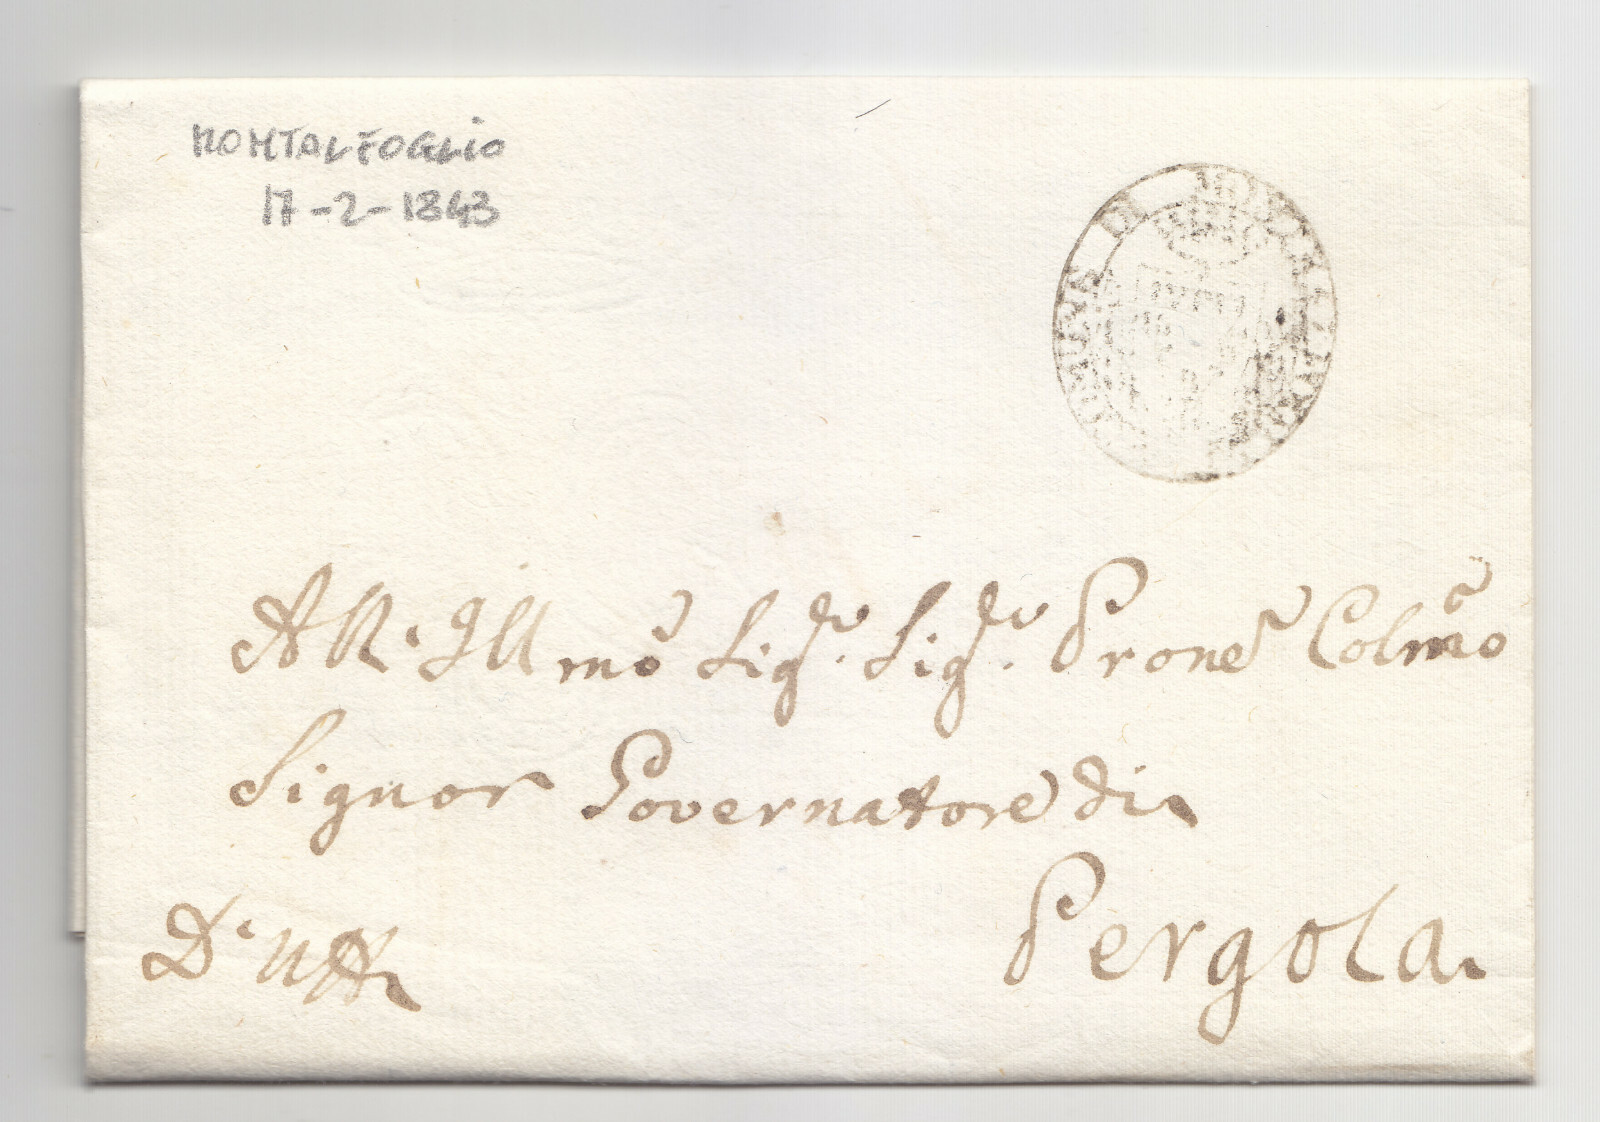 MONTALFOGLIO
17-2-1843
COMUNE DI MONTALFOGLIO
All'Illmo Sigr. Sigr. Prone Colmo
Signor Governatore di
Pergola.
D'Uff